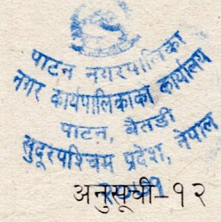 पाटन नगरपालिका
नगर कार्यपालिकाको कार्यालय
पाटन, बैतडी
सुदूरपश्चिम प्रदेश, नेपाल
अनुसूची-१२